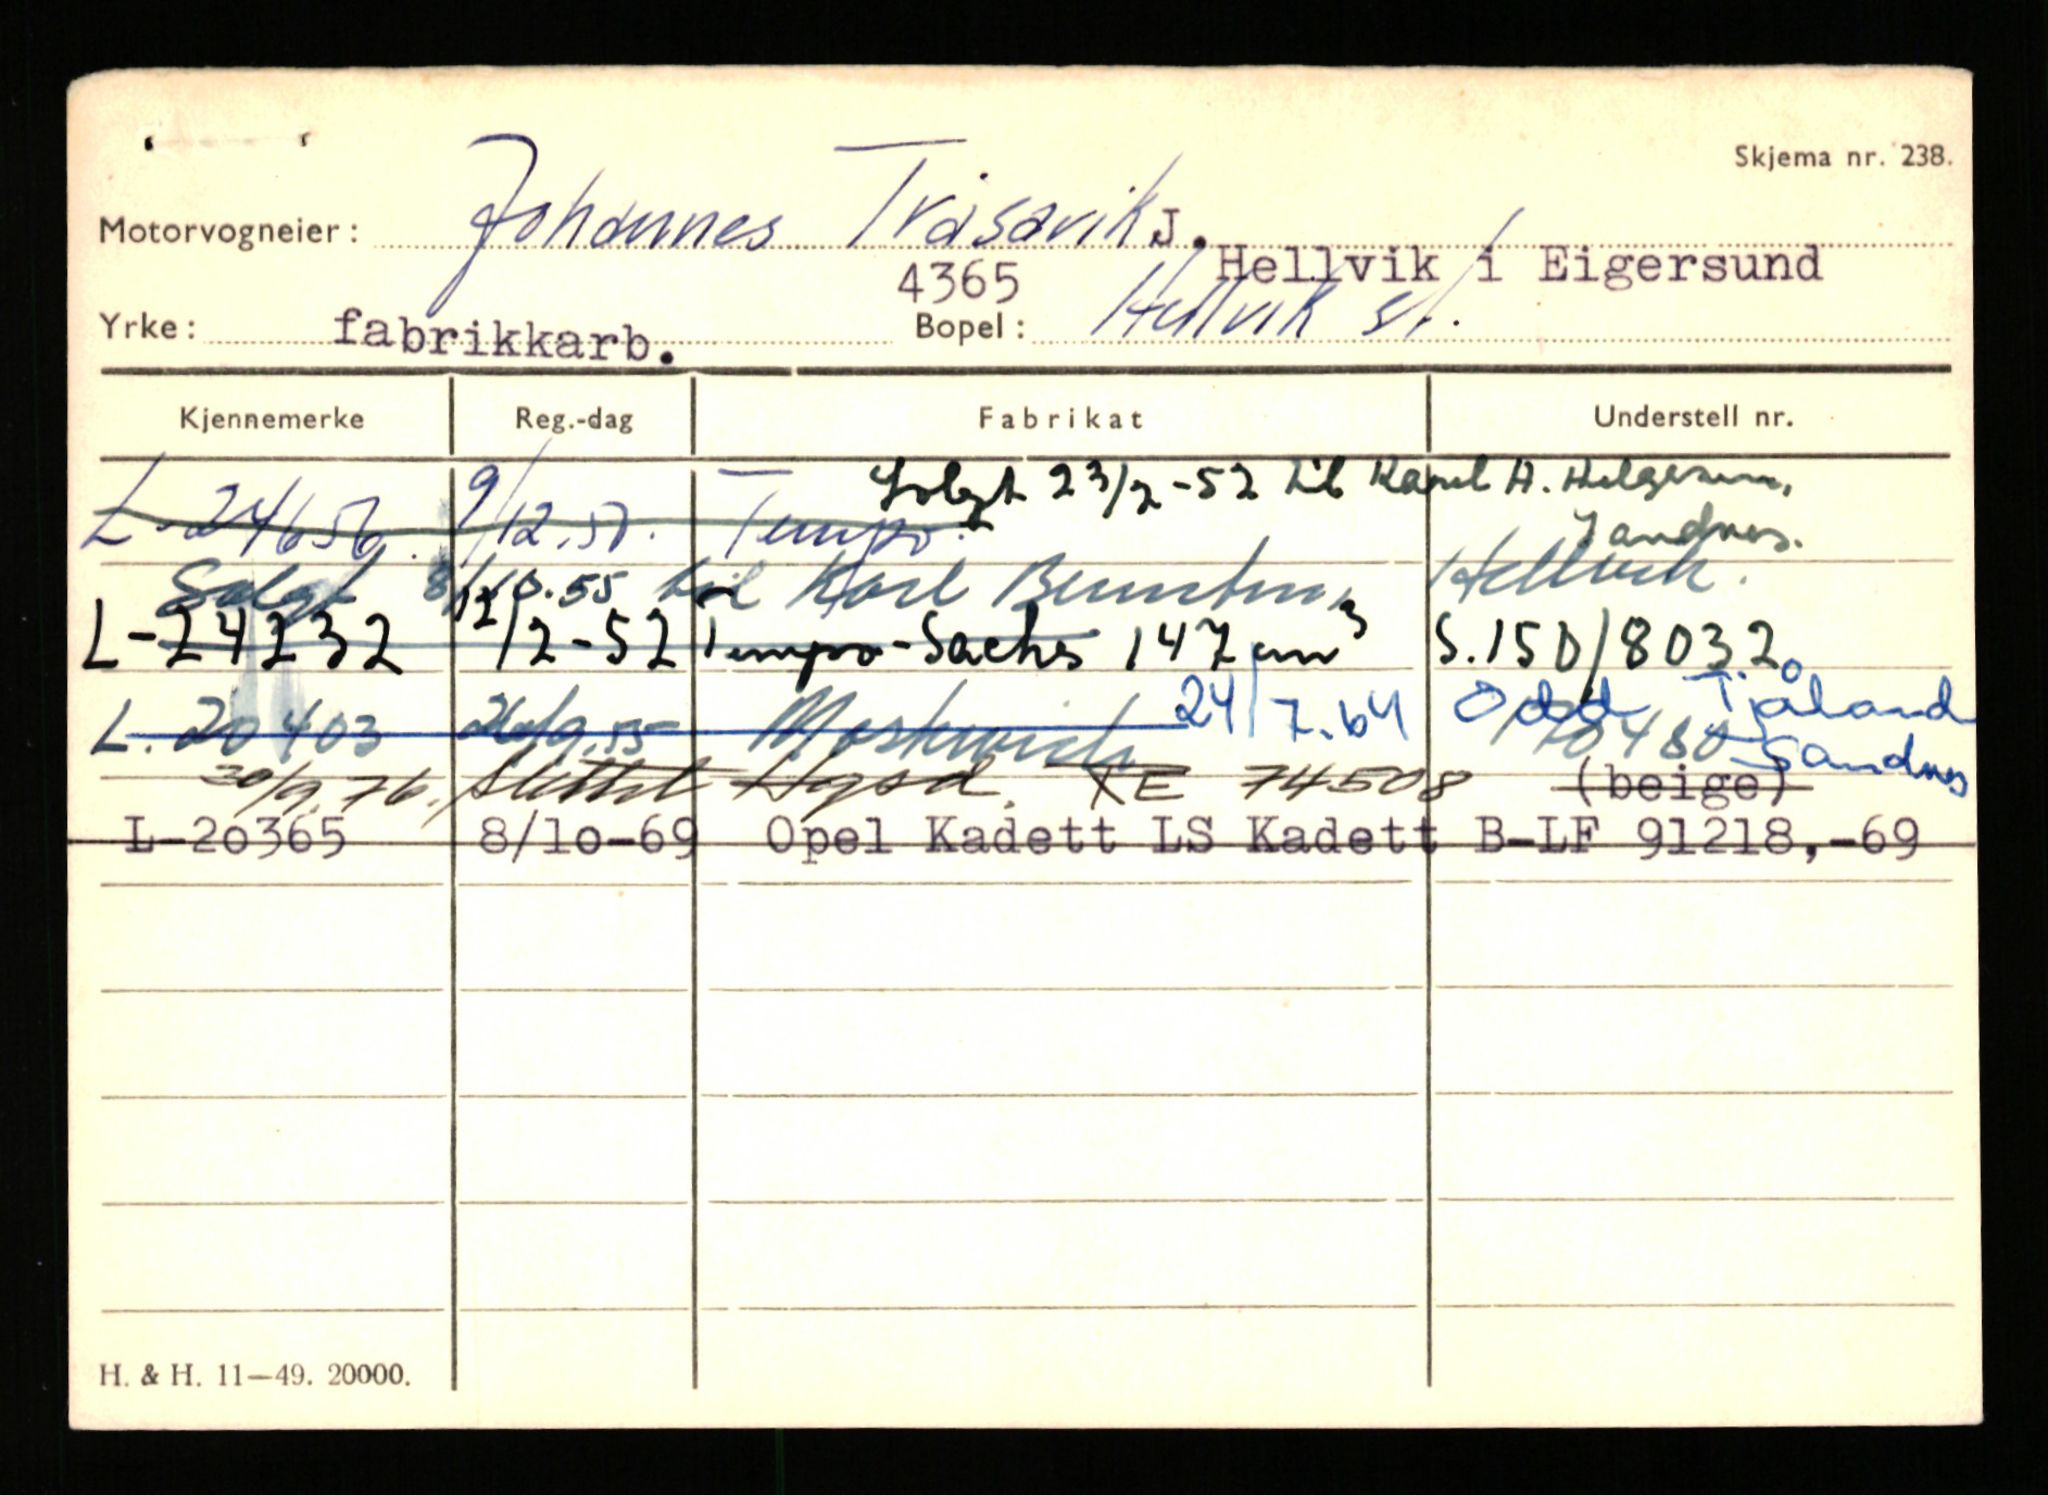 Skjema nr. 238.
Motorvogneier: Johannes Träsavik J.
4365 Hellvik i Eigersund
Yrke: fabrikkarb. Bopel: Hellvik st.
Kjennemerke Reg.-dag Fabrikat Understell nr.
Solgt 23/2-52 til A. Helgesen,
L-24656. 9/12.50. Tempo. Sandnes.
Solgt 8/10.55 til Karl Hellvik.
L-24232 12/2-52 Tempo-Sachs 147 cm³ S.150/8032
24/7.64 Odd Tjåland
L. 20403 Moskwich Sandnes
30/9.76. Slettet Hgsd. TE 74508 (beige)
L-20365 8/10-69 Opel Kadett LS Kadett B-LF 91218,-69
H. & H. 11—49. 20000.